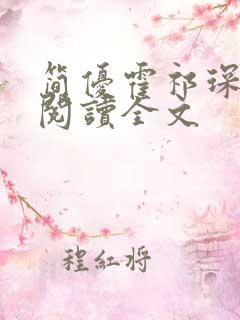 简優霍祁琛
閱讀全文
程紅将